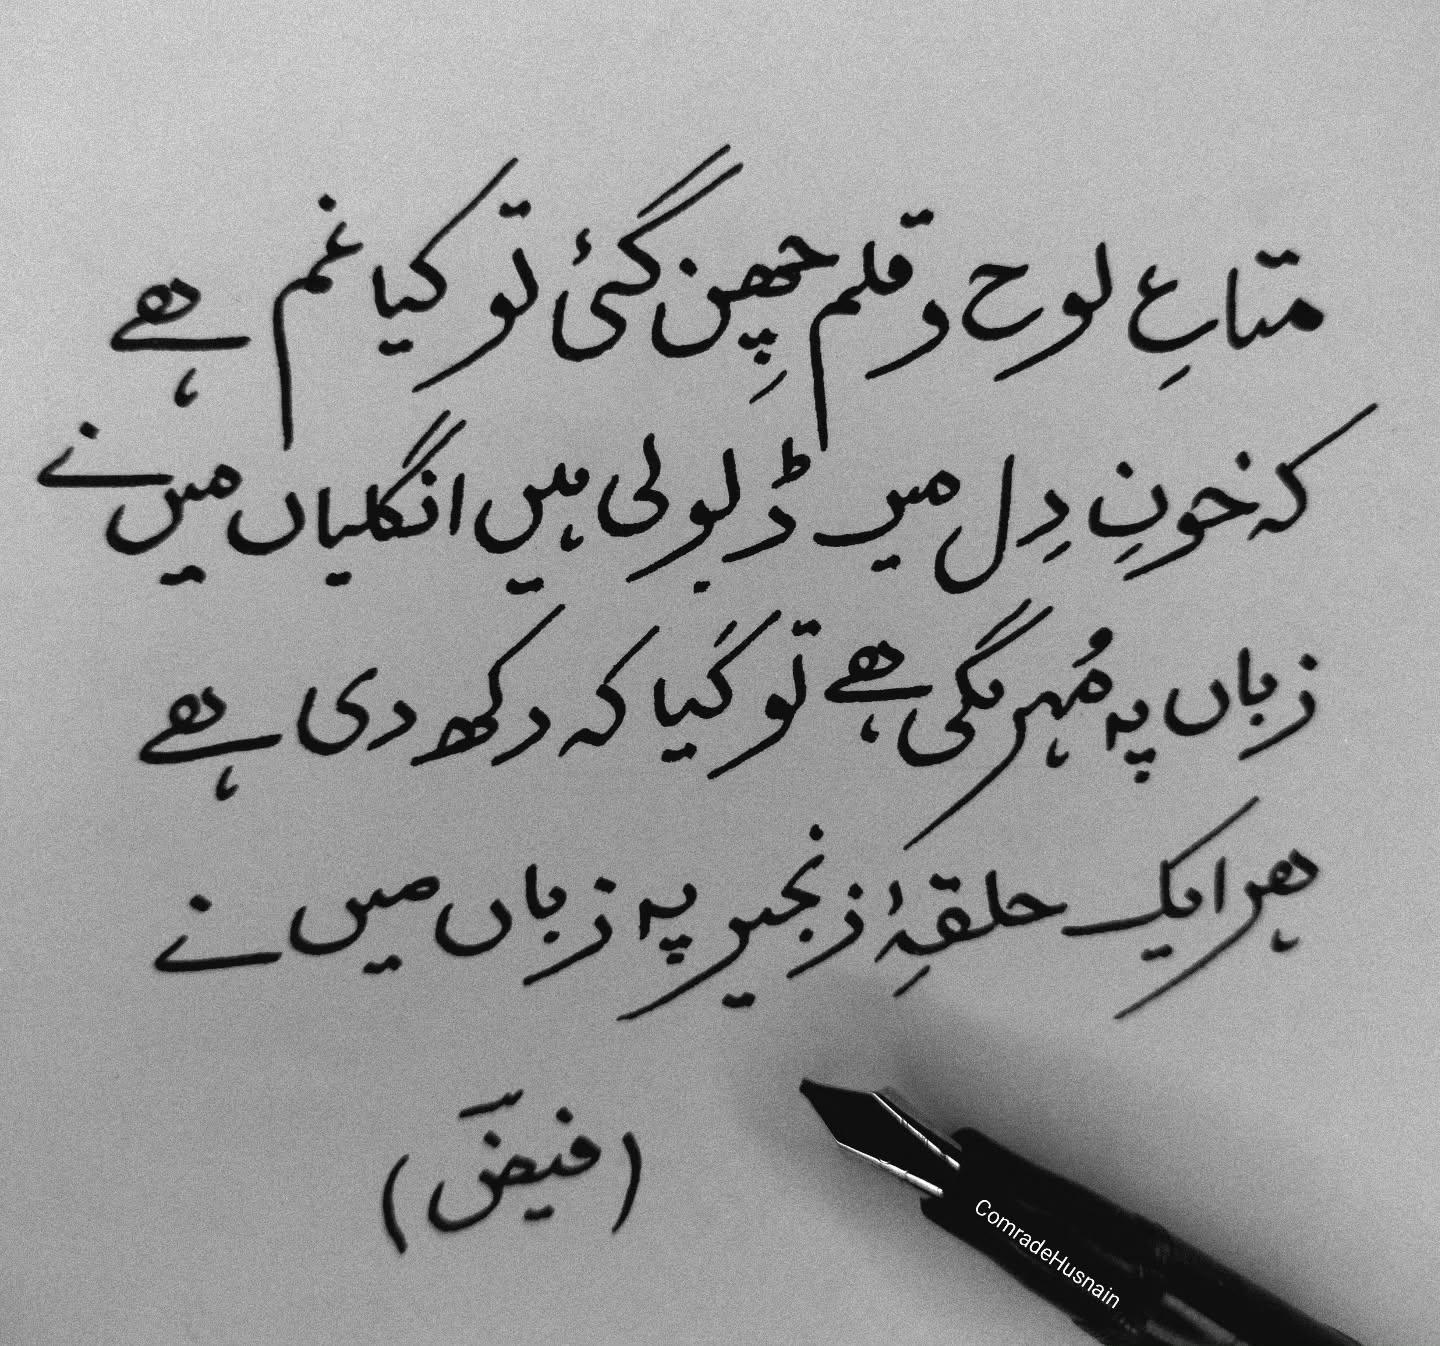 متاعِ لوح و قلم چھِن گئی تو کیا غم ھے
کہ خونِ دِل میں ڈبو لی ہیں انگلیاں میں نے
زباں پہ مُہر لگی ھے تو کَیا کہ رکھ دی ھے
ھر ایک حلقۂِ زنجیر پہ زباں میں نے
(فیضؔ)
ComradeHusnain